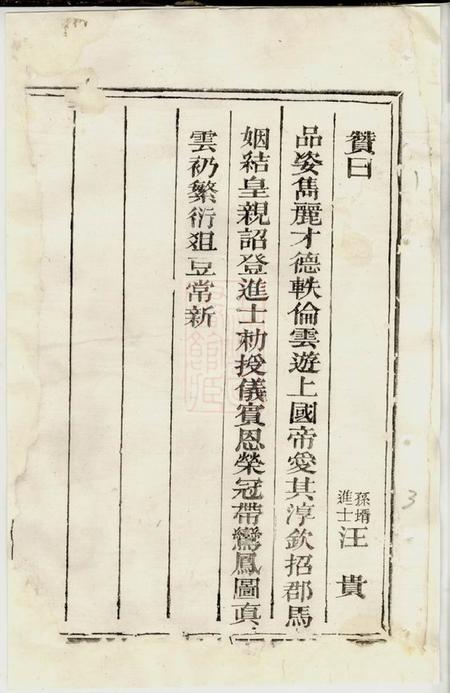 贊曰
孫壻
進士
汪貴
品姿雋麗才德軼倫雲遊上國帝愛其淳欽招郡馬
姻結皇親詔登進士勑授儀賓恩榮冠帶鸞鳳圖真
雲礽繁衍俎豆常新
3